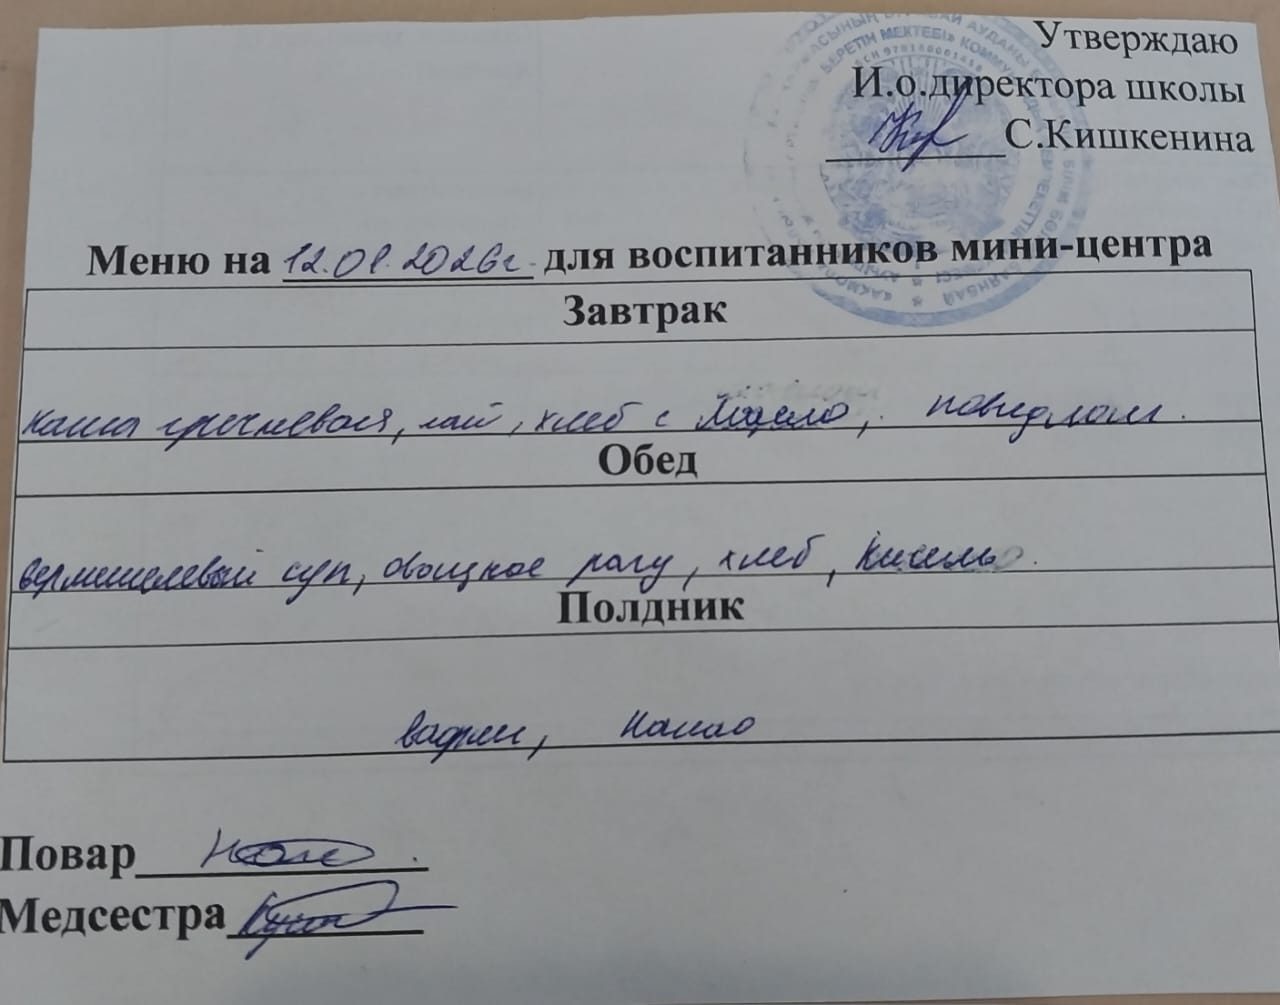 Утверждаю
И.о.директора школы
С.Кишкенина
Меню на 12.01.2026г. для воспитанников мини-центра
Завтрак
каша гречневая, чай, хлеб с масло, повидлом.
Обед
вермишелевый суп, овощное рагу, хлеб, кисель.
Полдник
вафли, какао
Повар
Медсестра